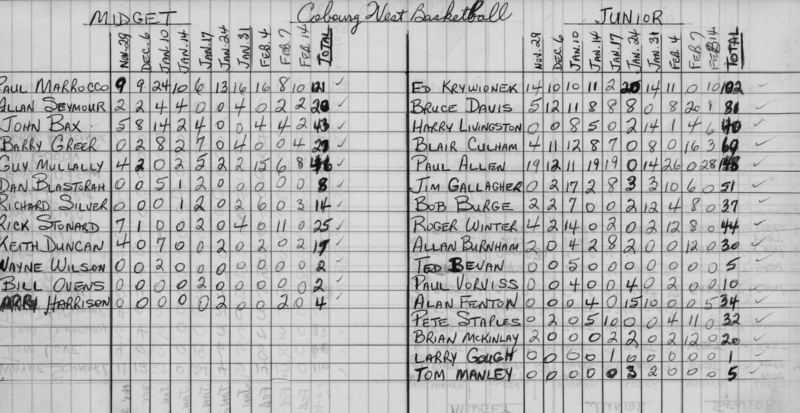 MIDGET Cobourg West Basketball JUNIOR
NOV.29 DEC.6 JAN.10 JAN.14 JAN.17 JAN.24 JAN.31 FEB.4 FEB.7 FEB.14 TOTAL NOV.29 DEC.6 JAN.10 JAN.14 JAN.17 JAN.24 JAN.31 FEB.4 FEB.7 FEB14 TOTAL
PAUL MARROCCO 9 9 24 10 6 13 16 16 8 10 121 ✓ ED KRYWIONEK 14 10 10 11 2 20 14 11 0 10 102 ✓
ALLAN SEYMOUR 2 2 4 4 0 0 4 0 2 2 20 ✓ BRUCE DAVIS 5 12 11 8 8 8 0 8 20 1 81 ✓
JOHN BAX 5 8 14 2 4 0 0 4 4 2 43 ✓ HARRY LIVINGSTON 0 0 8 5 0 2 14 1 4 6 40 ✓
BARRY GREER 0 2 8 2 7 0 4 0 0 4 27 ✓ BLAIR CULHAM 4 11 12 8 7 0 8 0 16 3 69 ✓
GUY MULLALLY 4 2 0 2 5 2 2 15 6 8 46 ✓ PAUL ALLEN 19 12 11 19 19 0 14 26 0 28 148 ✓
DAN BLASTORAH 0 0 5 1 2 0 0 0 0 0 8 ✓ JIM GALLAGHER 0 2 17 2 8 3 3 10 6 0 51 ✓
RICHARD SILVER 0 0 0 1 2 0 2 6 0 3 14 ✓ BOB BURGE 2 2 7 0 0 2 12 4 8 0 37 ✓
RICK STONARD 7 1 0 0 2 0 4 0 11 0 25 ✓ ROGER WINTER 4 2 14 0 2 0 2 12 8 0 44 ✓
KEITH DUNCAN 4 0 7 0 0 2 0 2 0 2 17 ✓ ALLAN BURNHAM 2 0 4 2 8 2 0 0 12 0 30 ✓
WAYNE WILSON 0 0 2 0 0 0 0 0 0 0 2 ✓ TED BEVAN 0 0 5 0 0 0 0 0 0 0 5 ✓
BILL OVENS 0 0 0 0 2 0 0 0 0 0 2 ✓ PAUL VORVISS 0 0 4 0 0 4 0 2 0 0 10 ✓
ARRY HARRISON 0 0 0 0 0 2 0 0 2 0 4 ✓ ALAN FENTON 0 0 0 4 0 15 10 0 0 5 34 ✓
PETE STAPLES 0 2 0 5 10 0 0 4 11 0 32 ✓
BRIAN MCKINLAY 2 0 0 0 2 2 0 2 12 0 20 ✓
LARRY GOUGH 0 0 0 0 1 0 0 0 0 0 1 ✓
TOM MANLEY 0 0 0 0 0 3 2 0 0 0 5 ✓